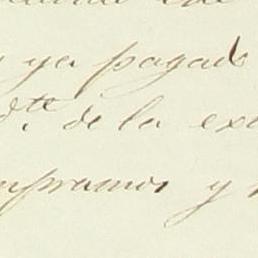 y ya pagado
dte. de la ex
mpramos y